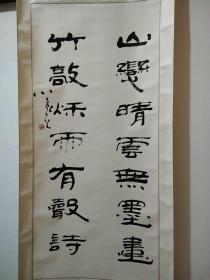 山巒晴雲無墨畫
竹敲秋雨有聲詩